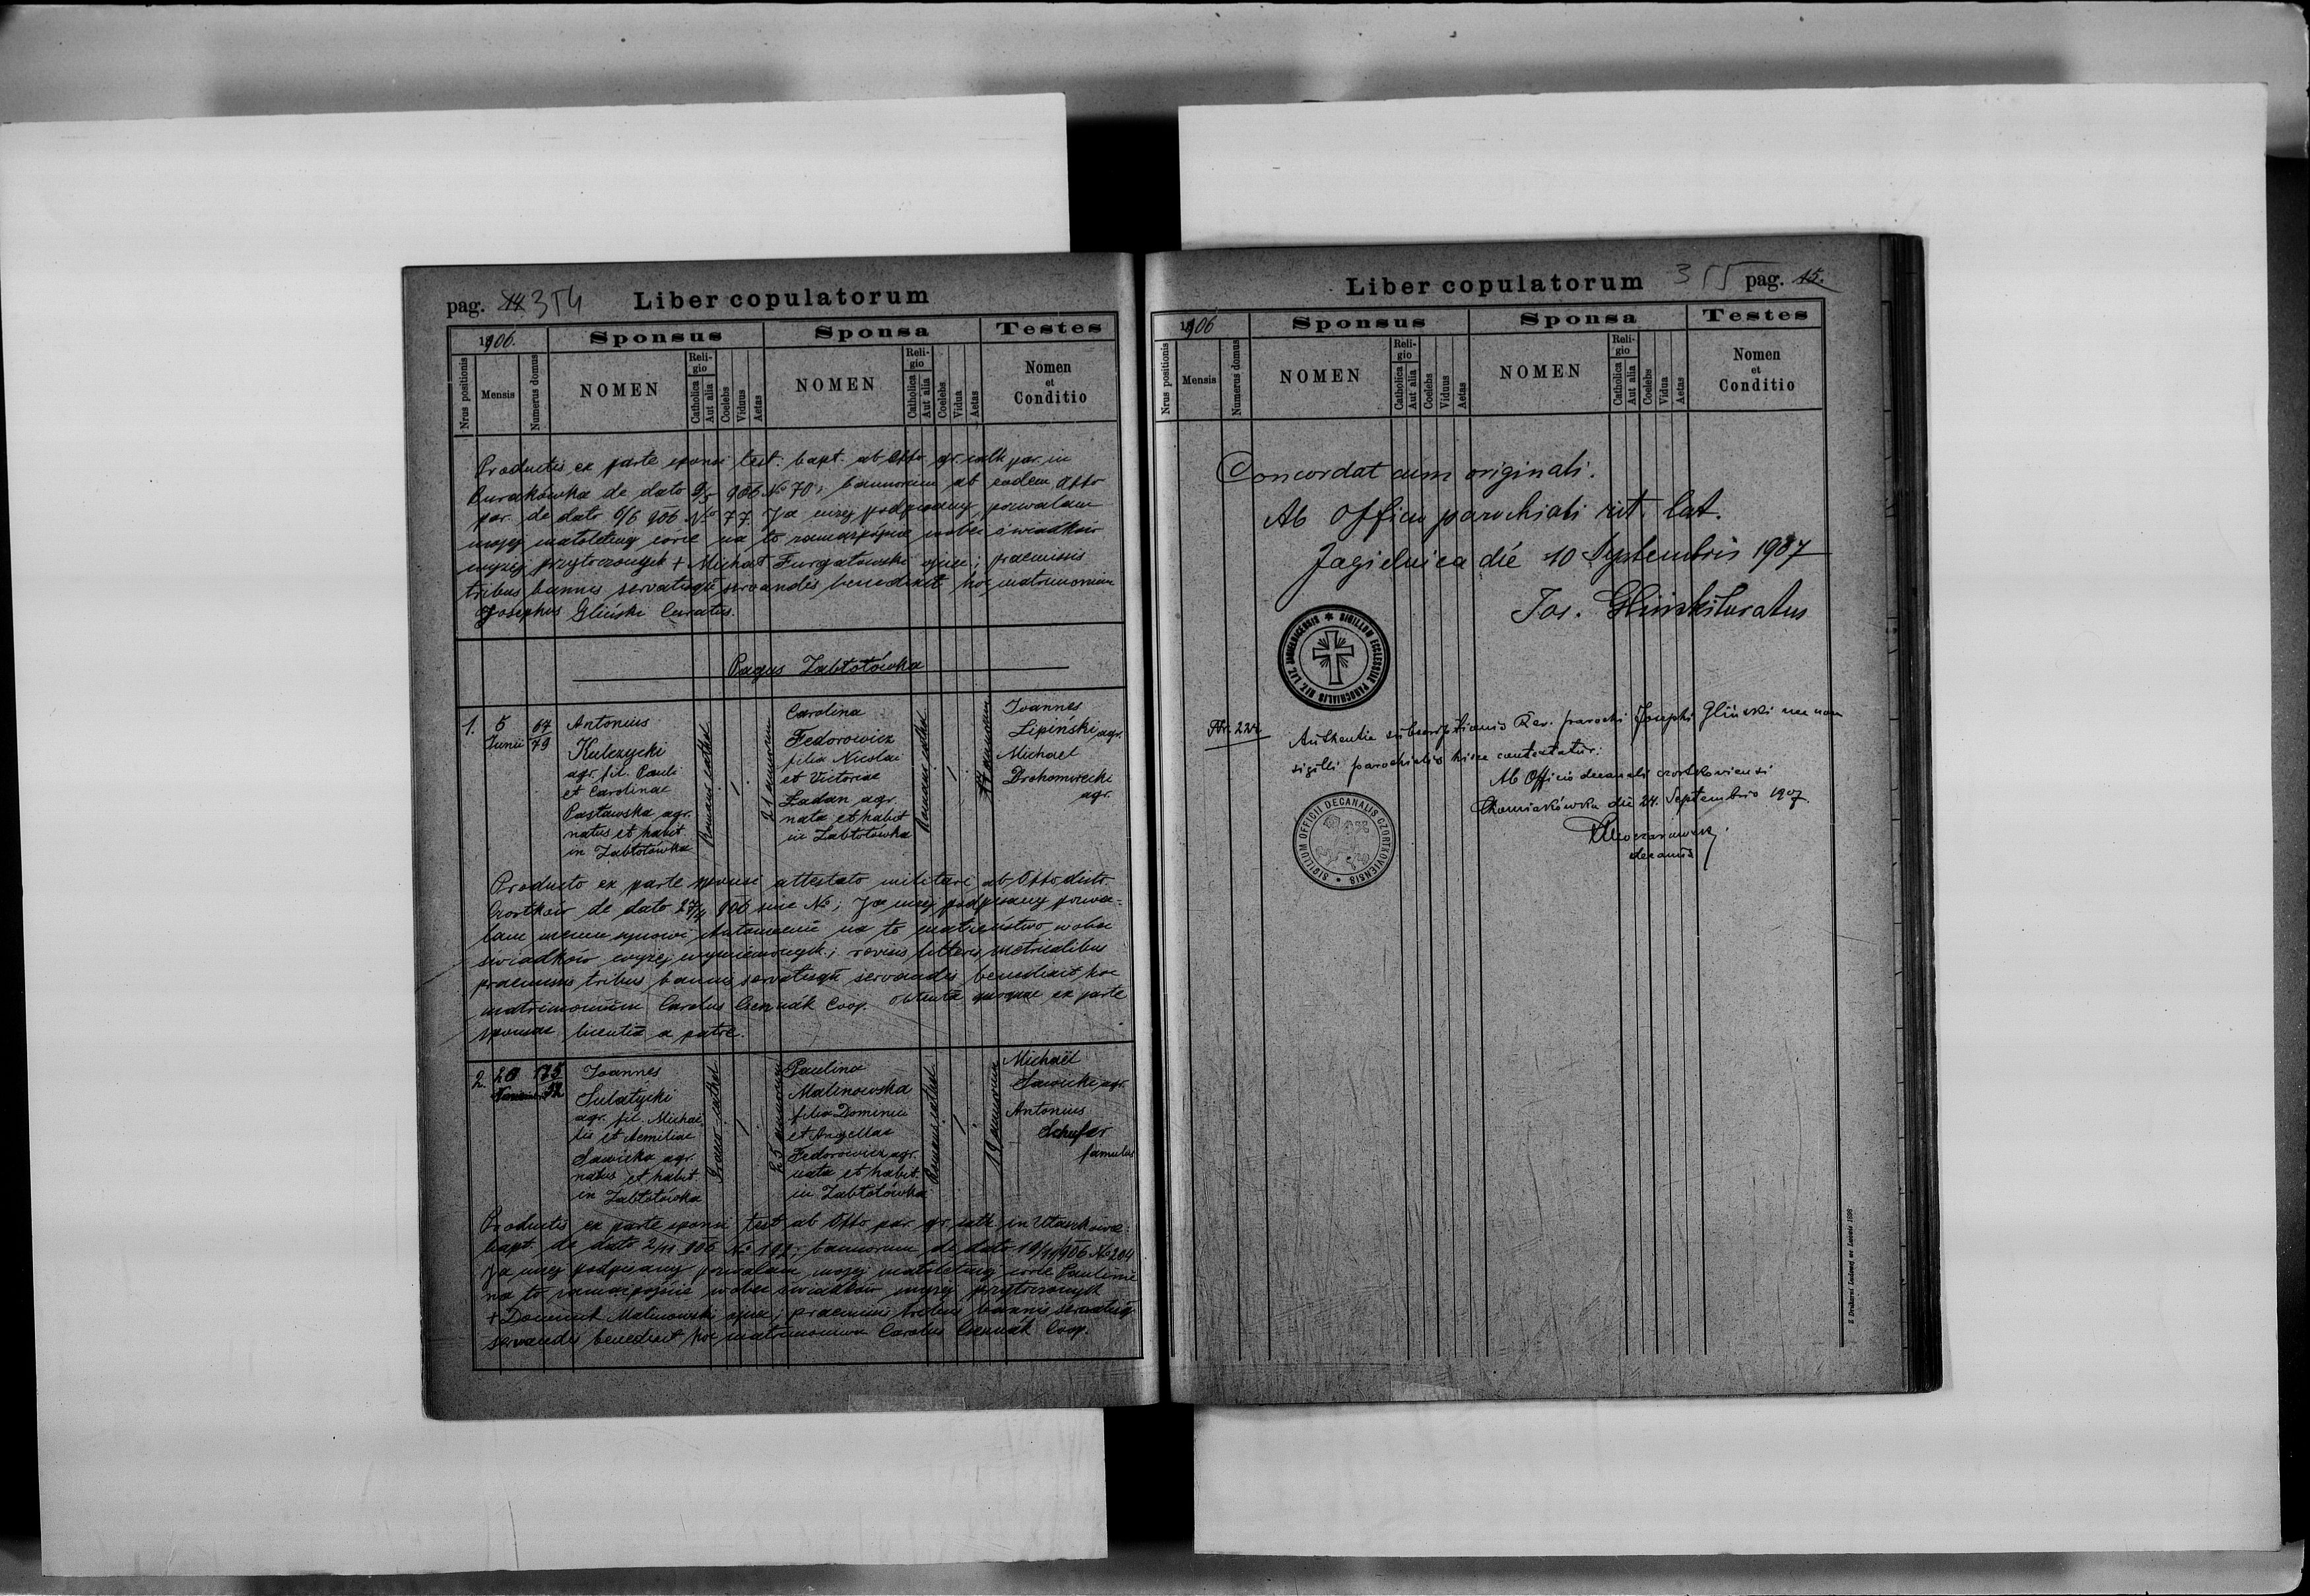 pag. 14. 354 Liber copulatorum
1906. Sponsus Sponsa Testes
Nrus positionis Mensis Numerus domus NOMEN Religio Catholica Aut alia Coelebs Viduus Aetas NOMEN Religio Catholica Aut alia Coelebs Vidua Aetas Nomen et Conditio
Productis ex parte sponsi test. bapt. ab Offo gr. cath. par. in
de dato 9/5 906 No 70; bannorum ab eodem Offo
par. de dato 6/6 906 No 77. Ja niżej podpisany pozwalam
mojej małoletniej córce na to zamążpójście wobec świadków
wyżej przytoczonych + Michał ojciec; praemissis
tribus bannis servatisque servandis benedixit hoc matrimonium
Josephus Gliński Curatus.
Pagus Zabłotówka
1. 5 Junii 64 79
Antonius
Kulczycki
agr. fil. Pauli
et Carolinae
Pasławska agr.
natus et habit.
in Zabłotówka
Romano cathol.
21 annorum
Carolina
Fedorowicz
filia Nicolai
et Victoriae
Ładan agr.
nata et habit
in Zabłotówka
Romano cathol.
17 annorum
Joannes
Lipiński agr.
Michael
Drohomirecki
agr.
Producto ex parte sponsi attestato militari ab Offo distr.
Czortków de dato 27/4 906 sine No; Ja niżej podpisany pozwa-
lam memu synowi Antoniemu na to małżeństwo wobec
świadków wyżej wymienionych; revisis litteris metricalibus
praemissis tribus bannis servatisque servandis benedixit hoc
matrimonium Carolus Czernák Coop. Obtenta quoque ex parte
sponsae licentia a patre.
2. 20 175 52
Joannes
Sulatycki
agr. fil. Michae-
lis et Aemiliae
Sawicka agr.
natus et habit.
in Zabłotówka
Graeco-cathol
25 annorum
Paulina
Malinowska
filia Dominici
et Angellae
Fedorowicz agr.
nata et habit.
in Zabłotówka
Romano cathol
19 annorum
Michaël
Sawicki agr.
Antonius
Schufer
famulus
Productis ex parte sponsi test ab Offo par. gr. cath. in
bapt. de dato 2/11 906 No 192; bannorum de dato 19/11 906 No 204
Ja niżej podpisany pozwalam mojej małoletniej córce Paulinie
na to zamążpójście wobec świadków wyżej przytoczonych
+ Dominik Malinowski ojciec; praemissis tribus bannis servatisq
servandis benedixit hoc matrimonium Carolus Czernák Coop.
Liber copulatorum 355 pag. 15.
1906 Sponsus Sponsa Testes
Nrus positionis Mensis Numerus domus NOMEN Religio Catholica Aut alia Coelebs Viduus Aetas NOMEN Religio Catholica Aut alia Coelebs Vidua Aetas Nomen et Conditio
Concordat cum originali.
Ab Officio parochiali rit. lat.
Jagielnica die 10 Septembris 1907
Jos. Gliński Curatus
SIGILLUM ECCLESIAE PAROCHIALIS RIT. LAT. JAGIELNICENSIS
Nr. 224
Authentia subscriptionis Rev. parochi Josephi Gliński nec non
sigilli parochialis hisce contestatur.
Ab Officio decanali czortkoviensi
Chomiakówka die 24. Septembris 1907.
decanus
SIGILLUM OFFICII DECANALIS CZORTKOVIENSIS